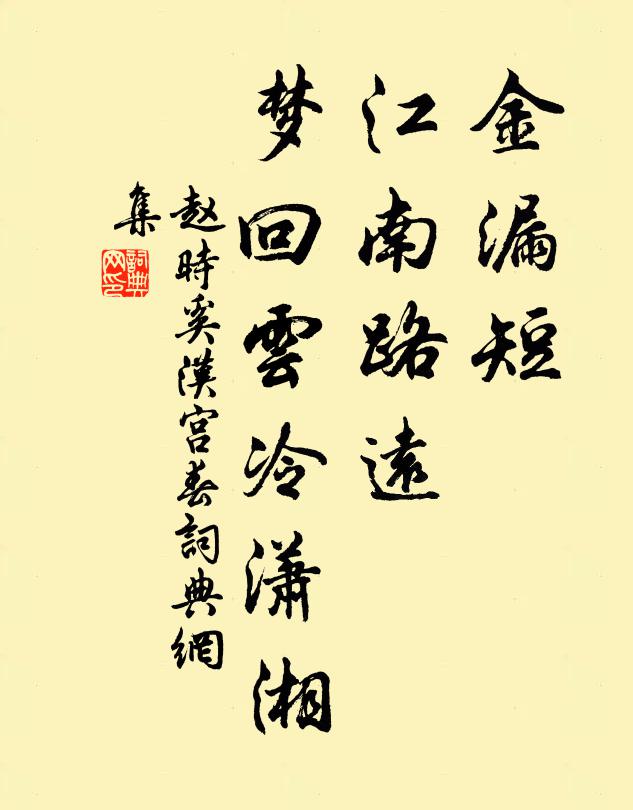 金漏短
江南路遠
梦回雲冷瀟湘
赵時奚漢宫春詞典網
集
詞典网印